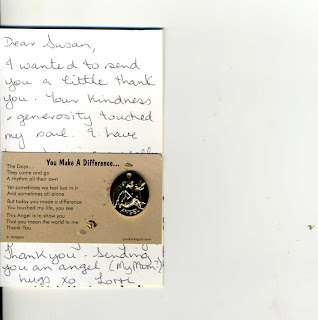 Dear Susan,
I wanted to send
you a little thank
you. Your kindness
& generosity touched
my soul. I have
You Make A Difference...
The Days...
They come and go
A rhythm all their own
Yet sometimes we feel lost in it
And sometimes all alone
But today you made a difference
You touched my life, you see
This Angel is to show you
That you mean the world to me
Thank You
Thank you. Sending
you an angel (My Mom?)
hugs xo Lorri